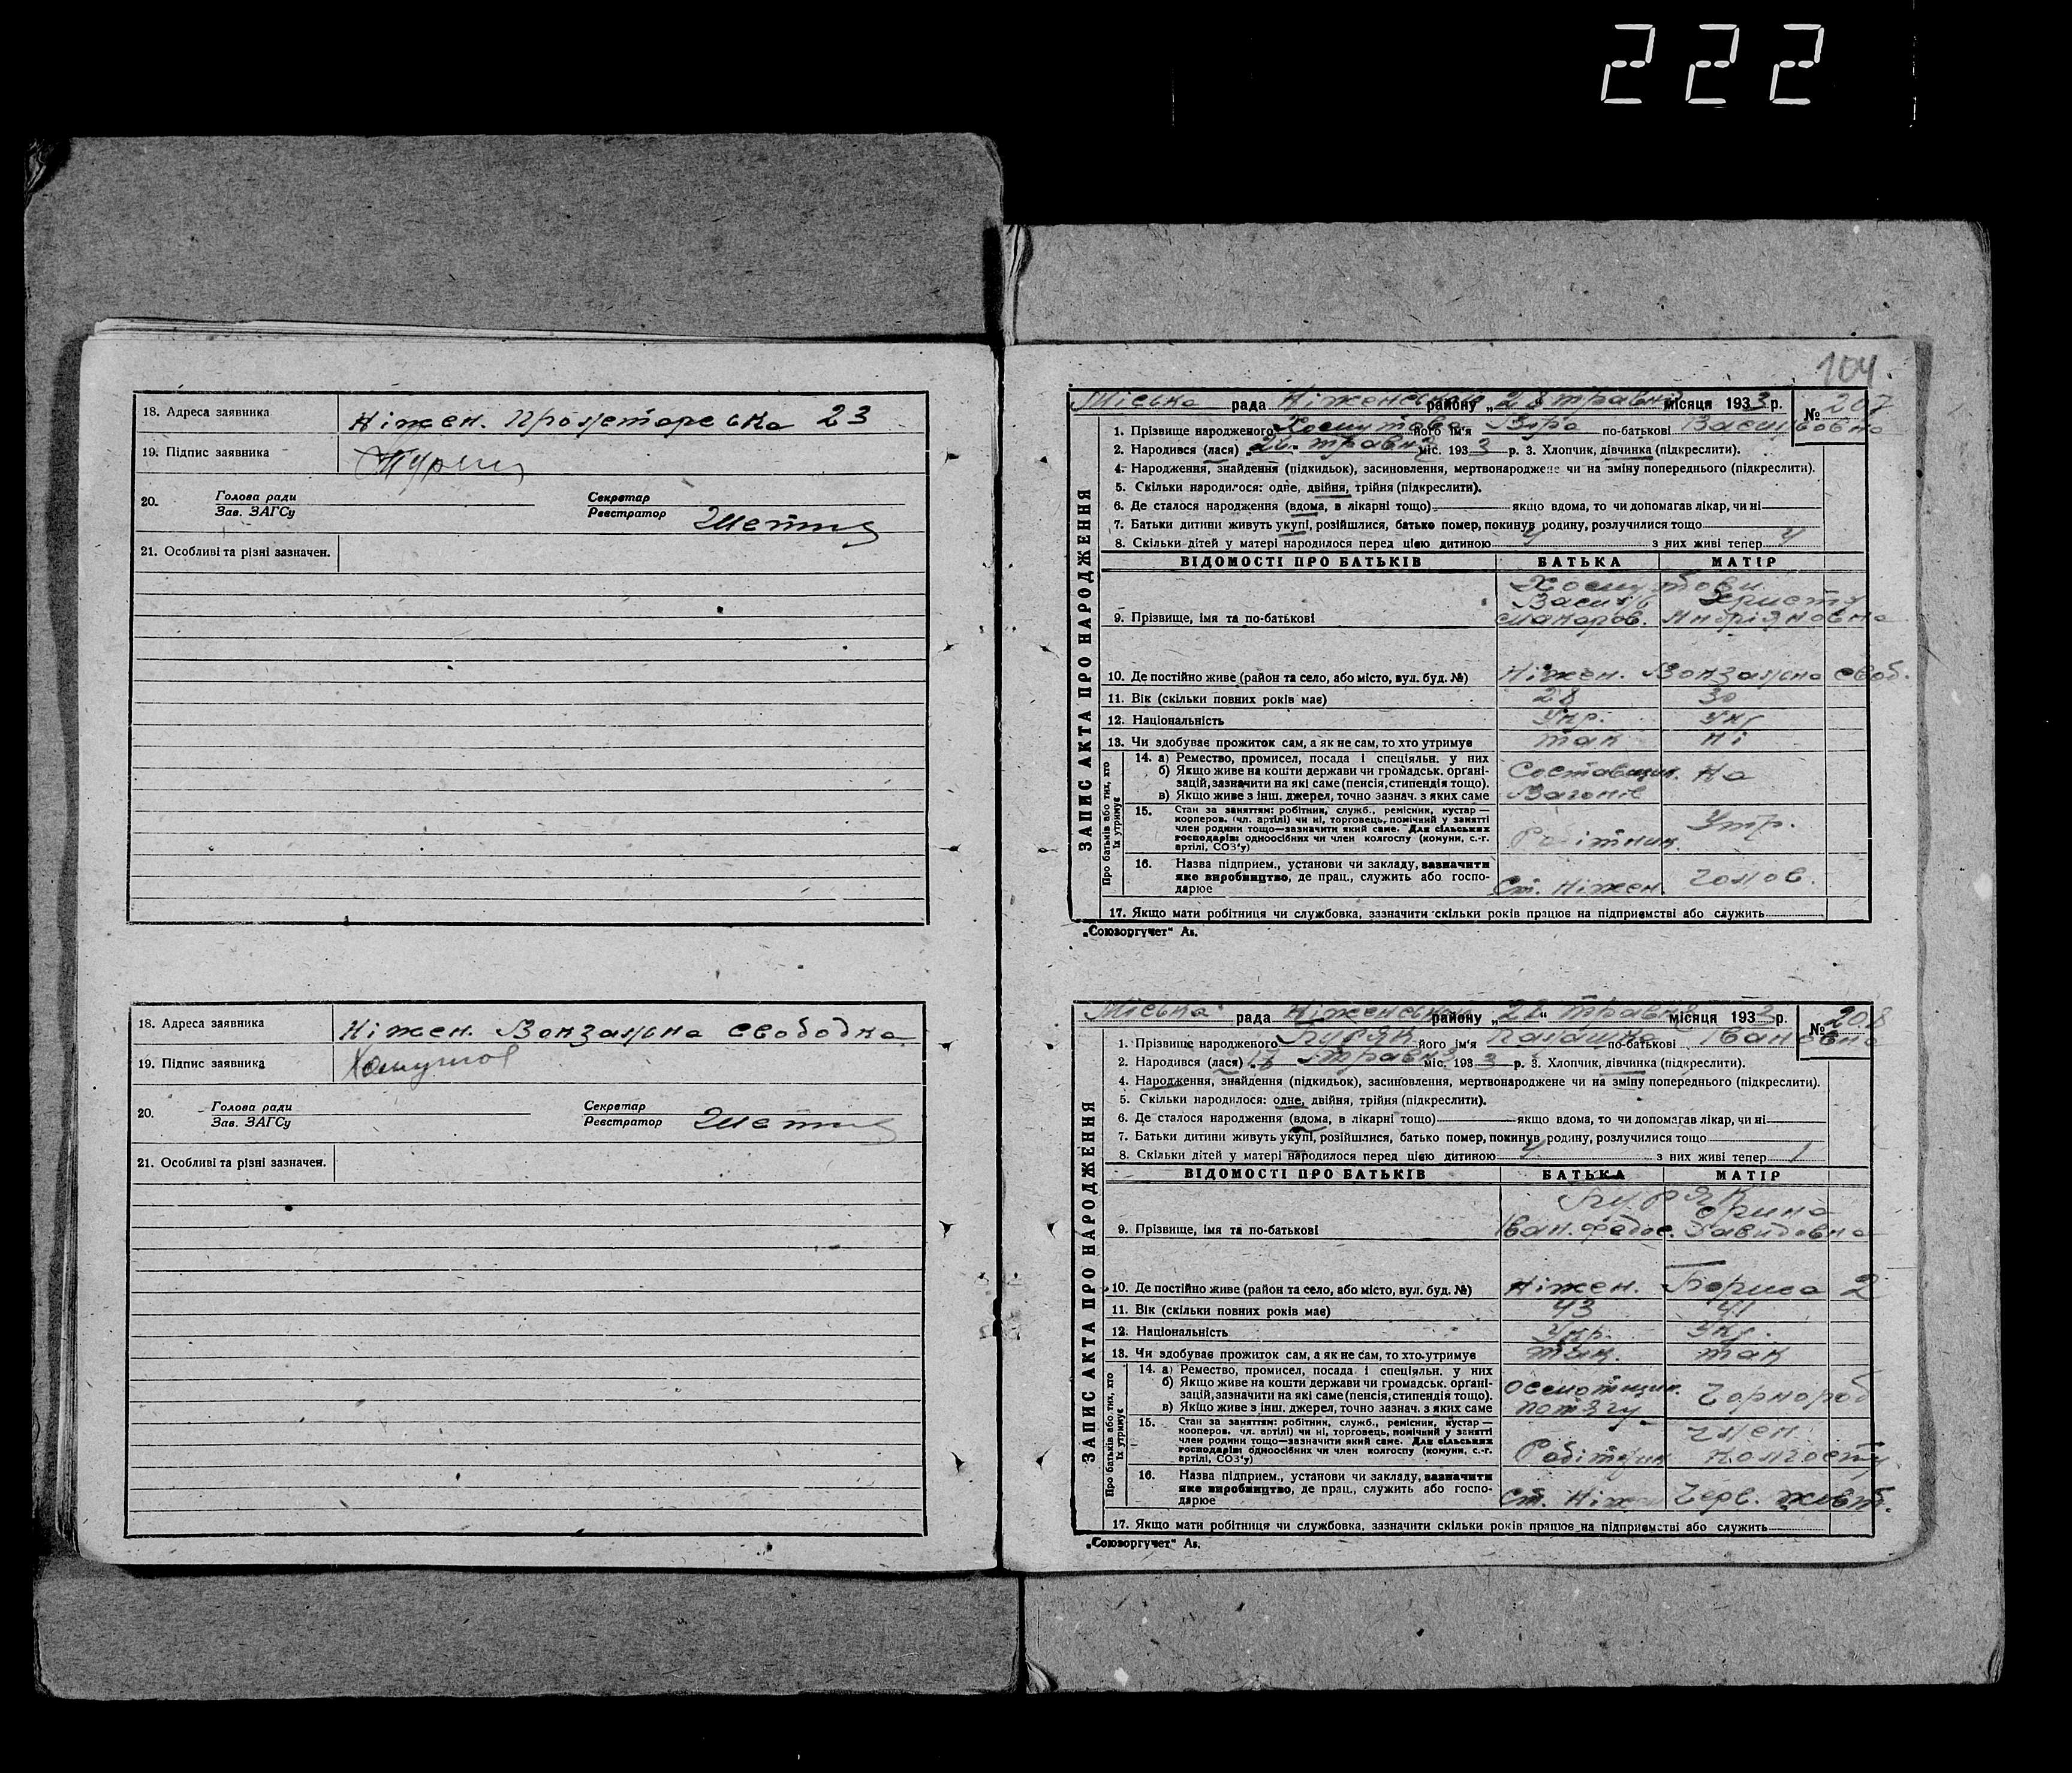 222
18. Адреса заявника Ніжен. Пролетарська 23
19. Підпис заявника
20. Голова ради Секретар
Зав. ЗАГСу Реєстратор
21. Особливі та різні зазначен.
18. Адреса заявника Ніжен. Вокзальна свободна
19. Підпис заявника Хомутов
20. Голова ради Секретар
Зав. ЗАГСу Реєстратор
21. Особливі та різні зазначен.
104.
ЗАПИС АКТА ПРО НАРОДЖЕННЯ
Міська рада Ніженського району „28 травня місяця 1933 р. № 207
1. Прізвище народженого Хомутова його ім'я Віра по-батькові Василівна
2. Народився (лася) травня міс. 1933 р. 3. Хлопчик, дівчинка (підкреслити).
4. Народження, знайдення (підкидьок), засиновлення, мертвонароджене чи на зміну попереднього (підкреслити).
5. Скільки народилося: одне, двійня, трійня (підкреслити).
6. Де сталося народження (вдома, в лікарні тощо) якщо вдома, то чи допомагав лікар, чи ні
7. Батьки дитини живуть укупі, розійшлися, батько помер, покинув родину, розлучилися тощо
8. Скільки дітей у матері народилося перед цією дитиною 4 з них живі тепер 4
ВІДОМОСТІ ПРО БАТЬКІВ БАТЬКА МАТІР
Хомутови
Василь Христя
9. Прізвище, імя та по-батькові Макаров. Андріяновна
10. Де постійно живе (район та село, або місто, вул. буд. №) Ніжен. Вокзальна своб.
11. Вік (скільки повних років має) 28 30
12. Національність Укр. Укр
13. Чи здобуває прожиток сам, а як не сам, то хто утримує так ні
Про батьків або тих, хто їх утримує
14. а) Ремество, промисел, посада і спеціяльн. у них
б) Якщо живе на кошти держави чи громадськ. органі- Составщик На
зацій, зазначити на які саме (пенсія, стипендія тощо).
в) Якщо живе з інш. джерел, точно зазнач. з яких саме Вагонів
15. Стан за заняттям: робітник, служб., ремісник, кустар —
кооперов. (чл. артілі) чи ні, торговець, помічний у занятті Утр.
член родини тощо—зазначити який саме. Для сільських
господарів: одноосібних чи член колгоспу (комуни, с.-г. Робітник.
артілі, СОЗ'у)
16. Назва підприєм., установи чи закладу, зазначити
яке виробництво, де прац., служить або госпо- Ст. Ніжен. голов.
дарює
17. Якщо мати робітниця чи службовка, зазначити скільки років працює на підприємстві або служить
„Союзоргучет" Аз.
ЗАПИС АКТА ПРО НАРОДЖЕННЯ
Міська рада Ніженського району „28" травня місяця 1933 р. № 208
1. Прізвище народженого Буряк його ім'я Палашка по-батькові Івановна
2. Народився (лася) травня міс. 1933 р. 3. Хлопчик, дівчинка (підкреслити).
4. Народження, знайдення (підкидьок), засиновлення, мертвонароджене чи на зміну попереднього (підкреслити).
5. Скільки народилося: одне, двійня, трійня (підкреслити).
6. Де сталося народження (вдома, в лікарні тощо) якщо вдома, то чи допомагав лікар, чи ні
7. Батьки дитини живуть укупі, розійшлися, батько помер, покинув родину, розлучилися тощо
8. Скільки дітей у матері народилося перед цією дитиною 4 з них живі тепер 1
ВІДОМОСТІ ПРО БАТЬКІВ БАТЬКА МАТІР
Буряк
Ірина
9. Прізвище, імя та по-батькові Іван. Федос. Давидовна
10. Де постійно живе (район та село, або місто, вул. буд. №) Ніжен. Бориса 2
11. Вік (скільки повних років має) 43 41
12. Національність Укр. Укр.
13. Чи здобуває прожиток сам, а як не сам, то хто утримує так. так
Про батьків або тих, хто їх утримує
14. а) Ремество, промисел, посада і спеціяльн. у них
б) Якщо живе на кошти держави чи громадськ. органі- осмотщик. Чорнороб
зацій, зазначити на які саме (пенсія, стипендія тощо).
в) Якщо живе з інш. джерел, точно зазнач. з яких саме потягу
15. Стан за заняттям: робітник, служб., ремісник, кустар —
кооперов. чл. артілі) чи ні, торговець, помічний у занятті член
член родини тощо—зазначити який саме. Для сільських
господарів: одноосібних чи член колгоспу (комуни, с.-г. Робітник колгоспу
артілі, СОЗ'у)
16. Назва підприєм., установи чи закладу, зазначити
яке виробництво, де прац., служить або госпо- Ст. Ніжен Черв. жовт.
дарює
17. Якщо мати робітниця чи службовка, зазначити скільки років працює на підприємстві або служить
„Союзоргучет" Аз.